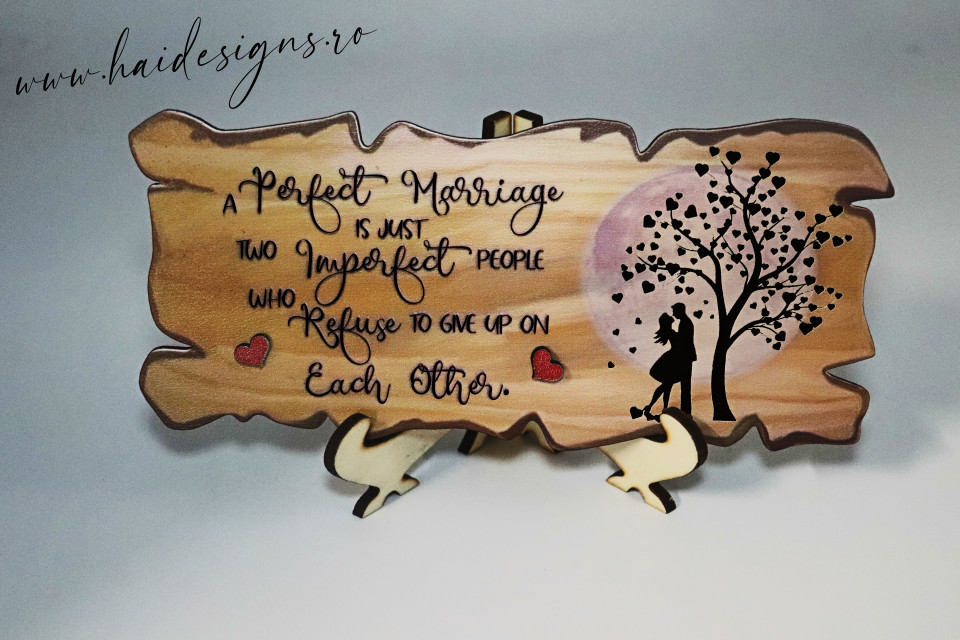 www.haidesigns.ro
A Perfect Marriage
IS JUST
TWO Imperfect PEOPLE
WHO Refuse TO GIVE UP ON
Each Other.